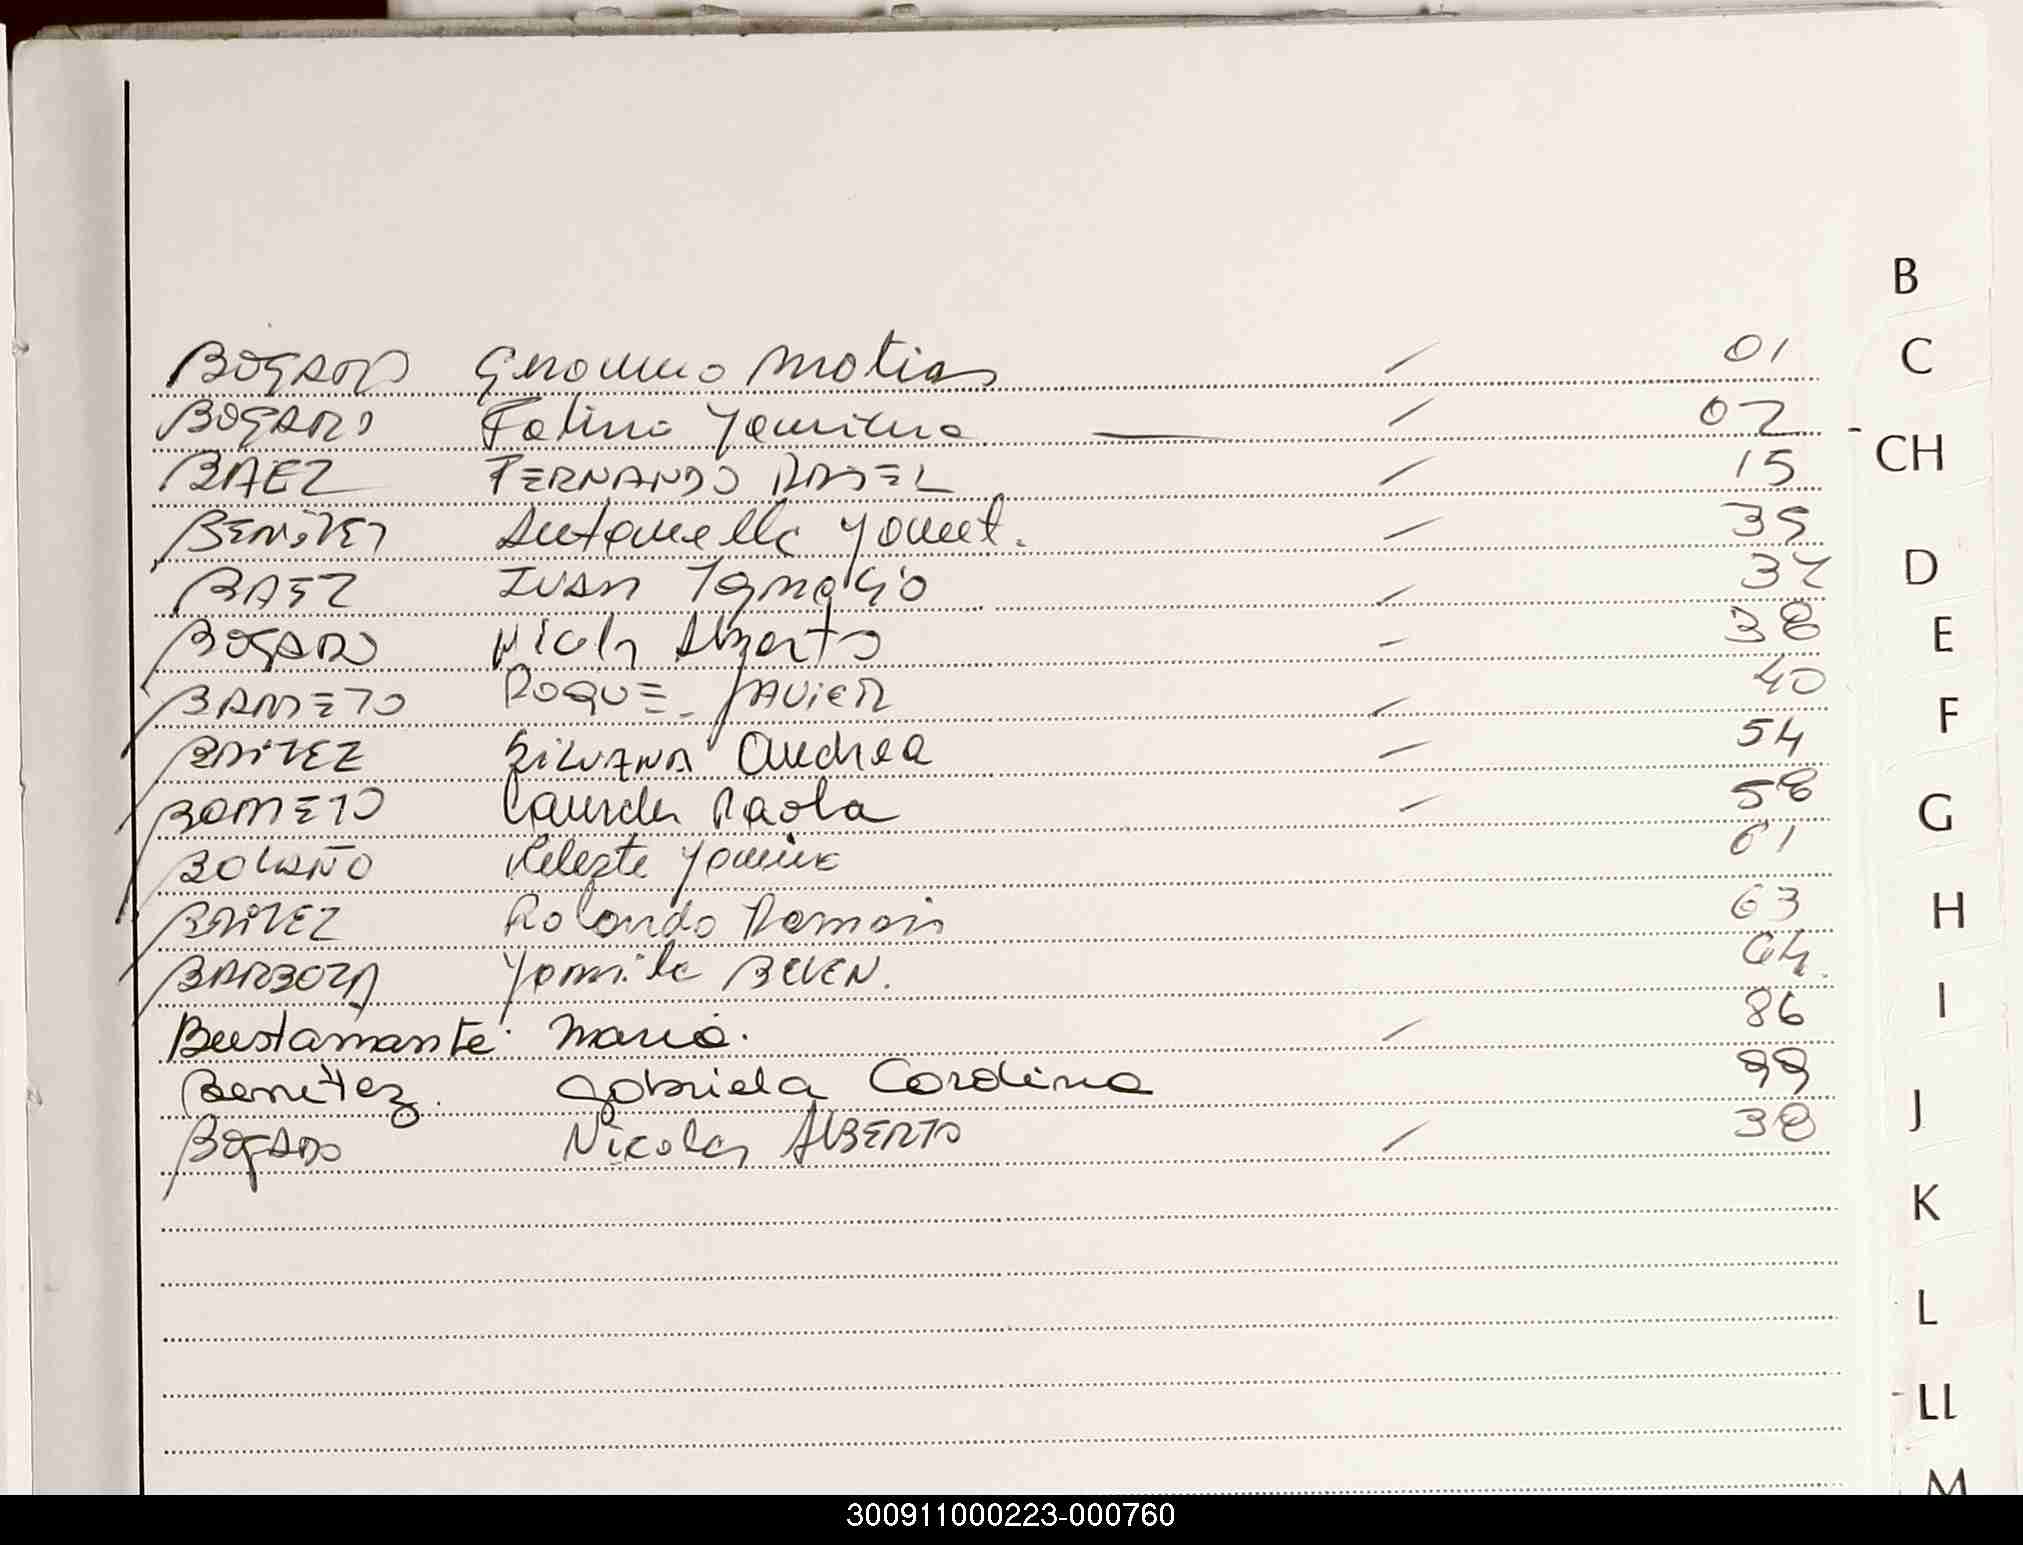 BOGADO Geronimo Matias / 01
BOGADO Fatima Yamilna — / 02
BAEZ FERNANDO RAFAEL / 15
BENITEZ Antonella Yanet. / 35
BAEZ IVAN Ignacio / 37
BOGADO Nicolas Alberto - 38
BARRETO ROQUE JAVIER / 40
BRITEZ SILVANA Andrea / 54
BARRETO Lourdes Paola / 58
BOLAÑO Celeste 61
BRITEZ Rolando Ramon 63
BARBOZA Yamila BELEN. 64.
Bustamante Maria. / 86
Benitez. Gabriela Cardina 99
BOGADO Nicolas ALBERTO / 38
B
C
CH
D
E
F
G
H
I
J
K
L
LL
M
300911000223-000760